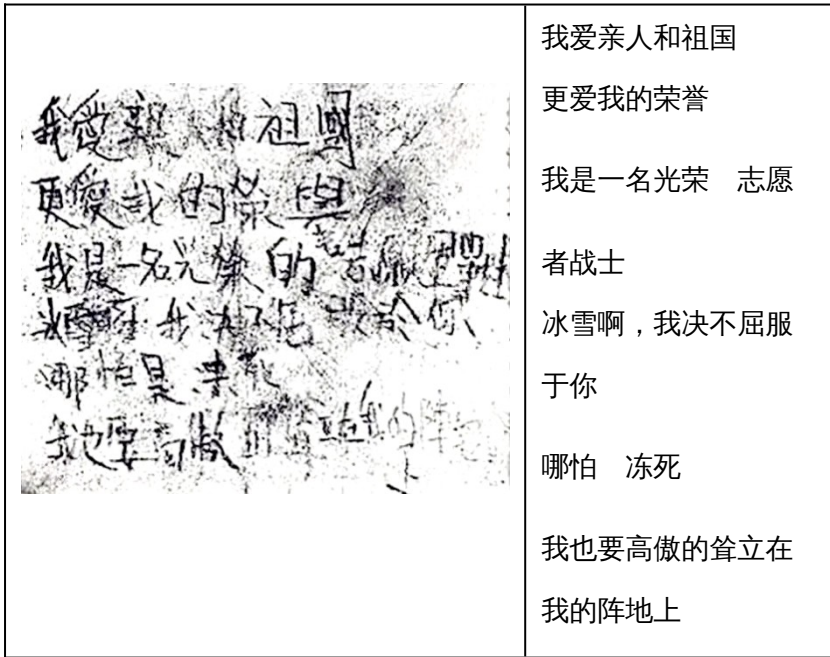 我愛親 和祖國
更愛我的榮譽
我是一名光榮的志
冰雪啊我决不屈 於你
哪怕是凍死
我也要高傲 立在我的阵地
上
我爱亲人和祖国
更爱我的荣誉
我是一名光荣 志愿
者战士
冰雪啊，我决不屈服
于你
哪怕 冻死
我也要高傲的耸立在
我的阵地上